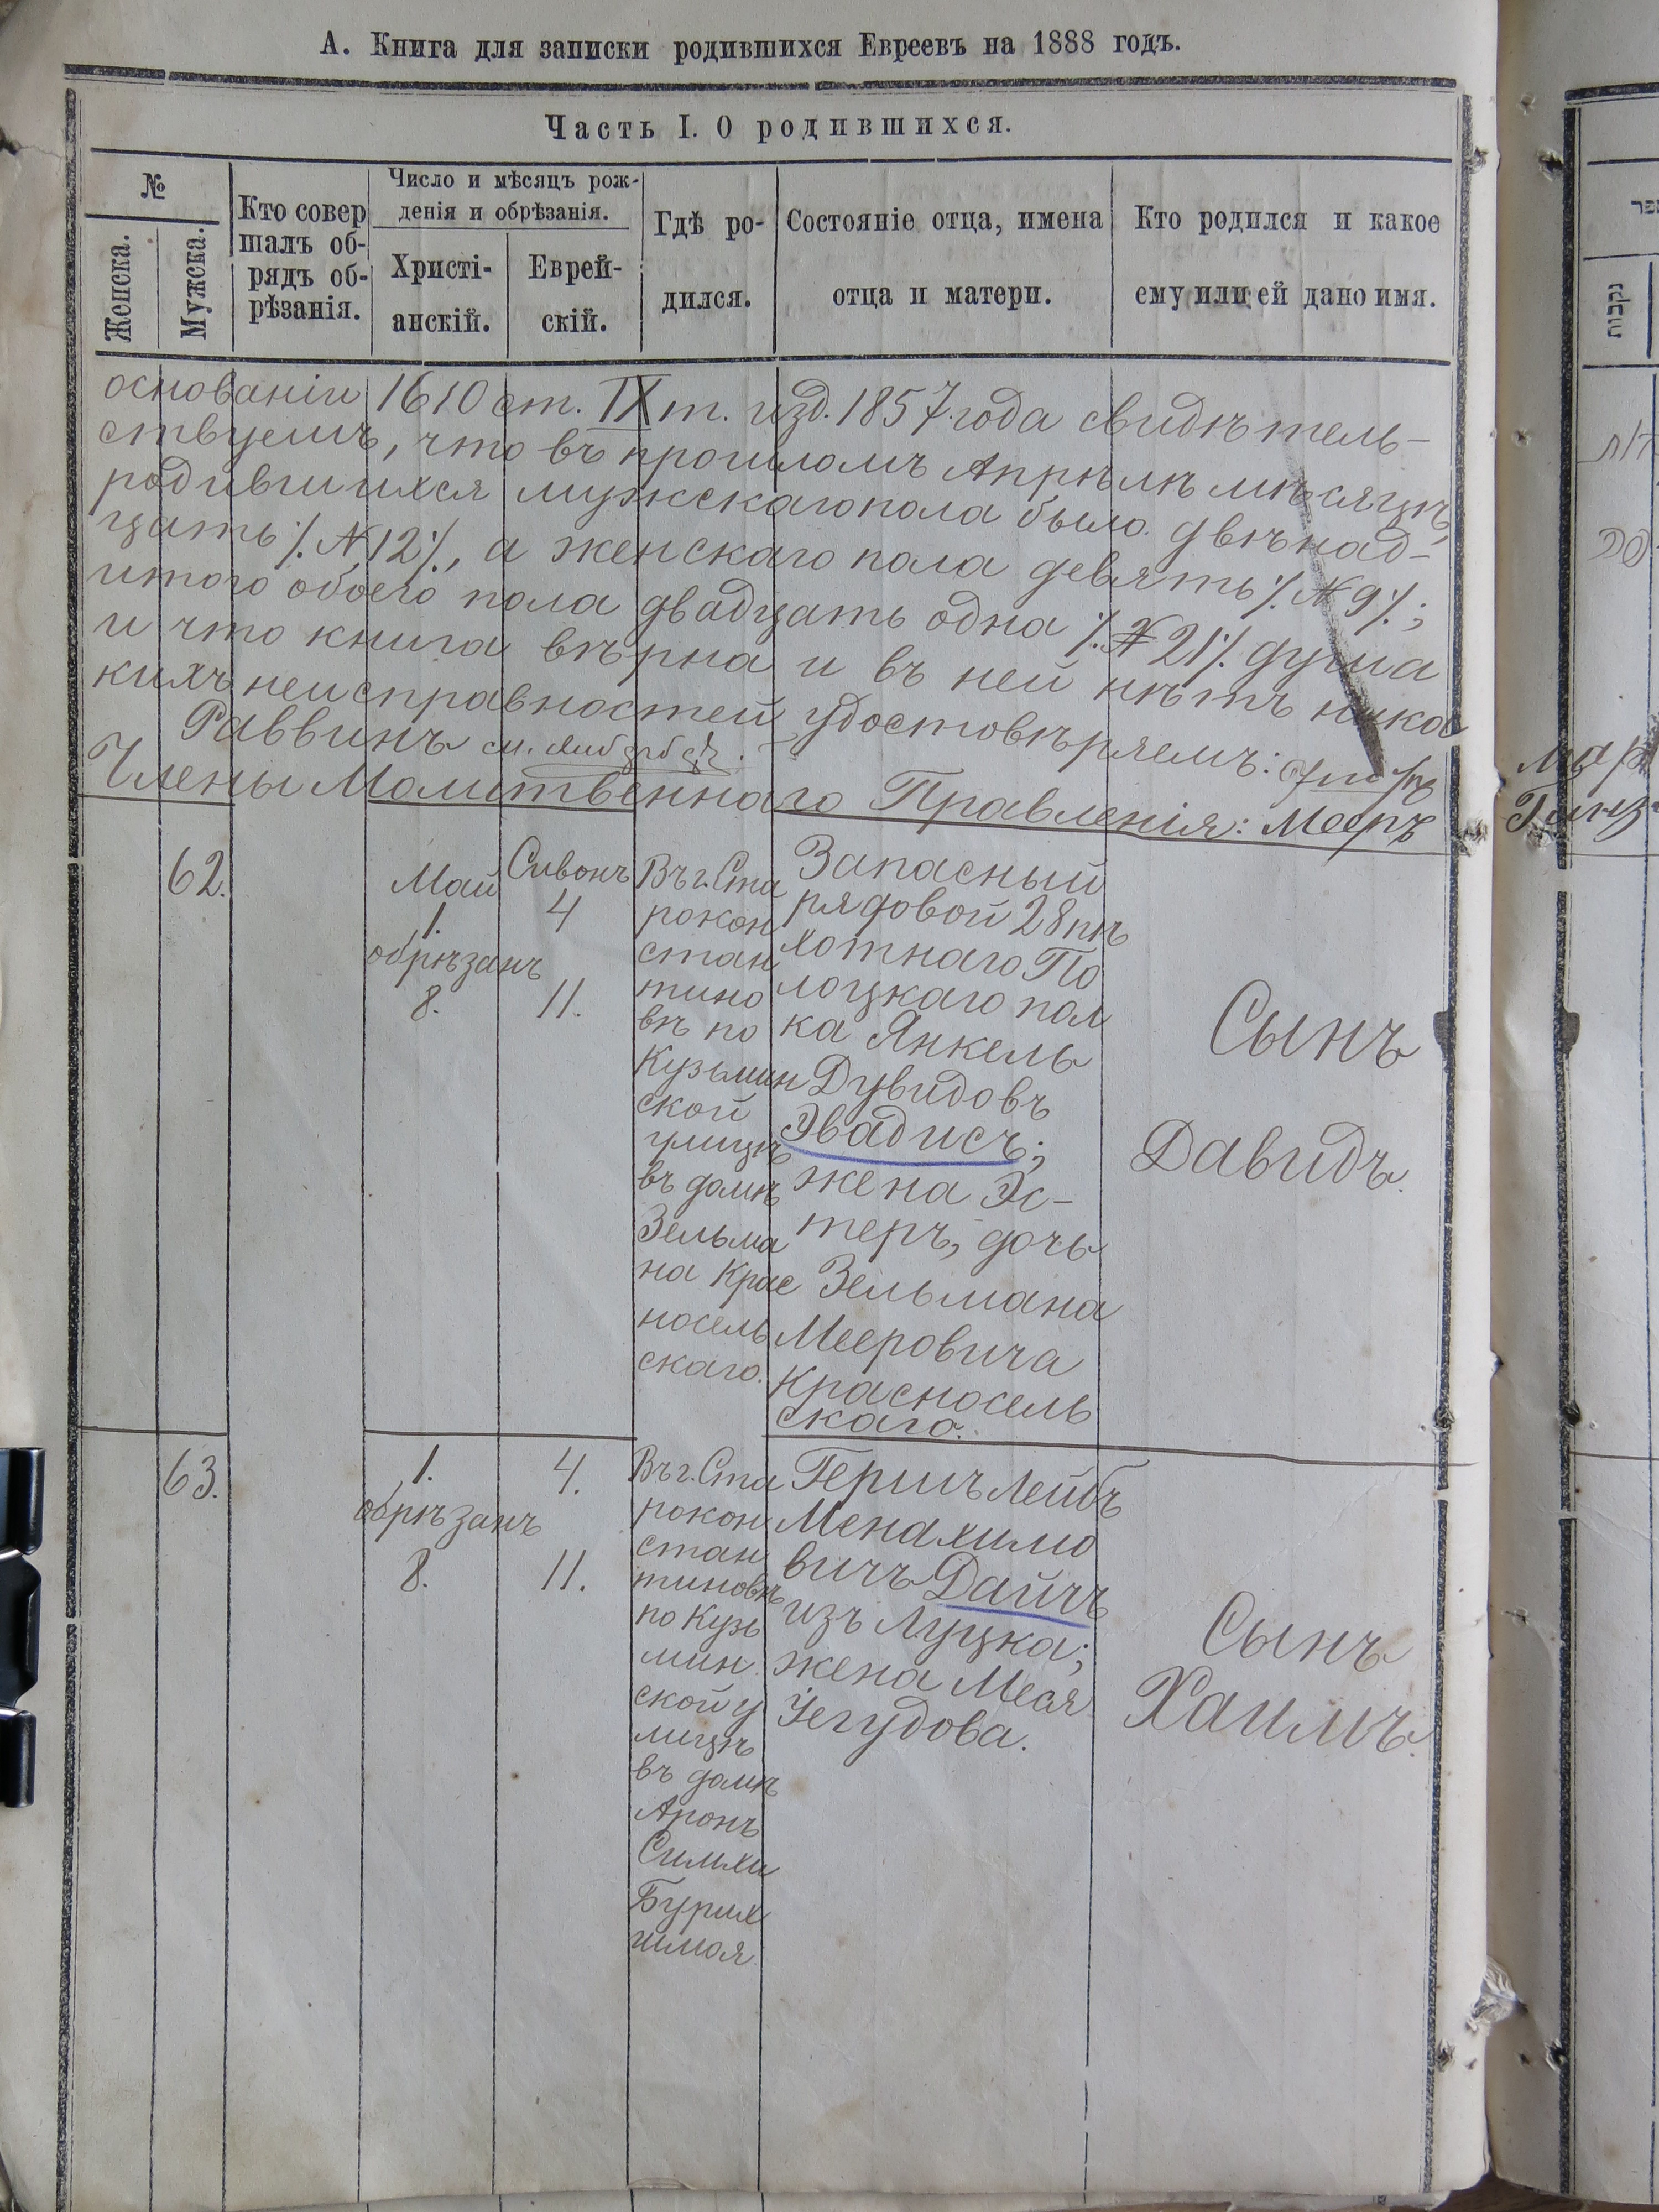 А. Книга для записки родившихся Евреевъ на 1888 годъ.
Часть I. О родившихся.
№
Женска.
Мужска.
Кто совер
шалъ об-
рядъ об-
рѣзанія.
Число и мѣсяцъ рож-
денія и обрѣзанія.
Христі-
анскій.
Еврей-
скій.
Гдѣ ро-
дился.
Состояніе отца, имена
отца и матери.
Кто родился и какое
ему или ей дано имя.
основаніи 1610 ст. IX т. изд. 1857 года свидѣтель-
ствуемъ, что въ прошломъ Апрѣлѣ мѣсяцѣ
родившихся мужскаго пола было двѣнад-
цать ·/. №12 ·/., а женскаго пола девять ·/. №9 ·/.;
итого обоего пола двадцать одна ·/. №21 ·/. душа
и что книга вѣрна и въ ней нѣтъ ника
кихъ неисправностей удостовѣряемъ:
Раввинъ
Члены Молитвеннаго Правленія: Мееръ
62.
Май
1.
обрѣзанъ
8.
Сивонъ
4
11.
Въ г. Ста
рокон
стан
тино
вѣ по
Кузьмин
ской
улицѣ
въ домѣ
Зельма
на Крас
носель
скаго.
Запасный
рядовой 28 пѣ
хотнаго По
лоцкаго пол
ка Янкель
Дувидовъ
Эвадисъ;
жена Эс-
теръ, дочь
Зельмана
Мееровича
Красносель
скаго.
Сынъ
Давидъ.
63.
1.
обрѣзанъ
8.
4.
11.
Въ г. Ста
рокон
стан
тиновѣ
по Кузь
мин
ской у
лицѣ
въ домѣ
Аронъ
Симхи
Гершъ Лейбъ
Менахимо
вичъ Дайчъ
изъ Луцка;
жена Меся
Іегудова.
Сынъ
Хаимъ.
נקבות